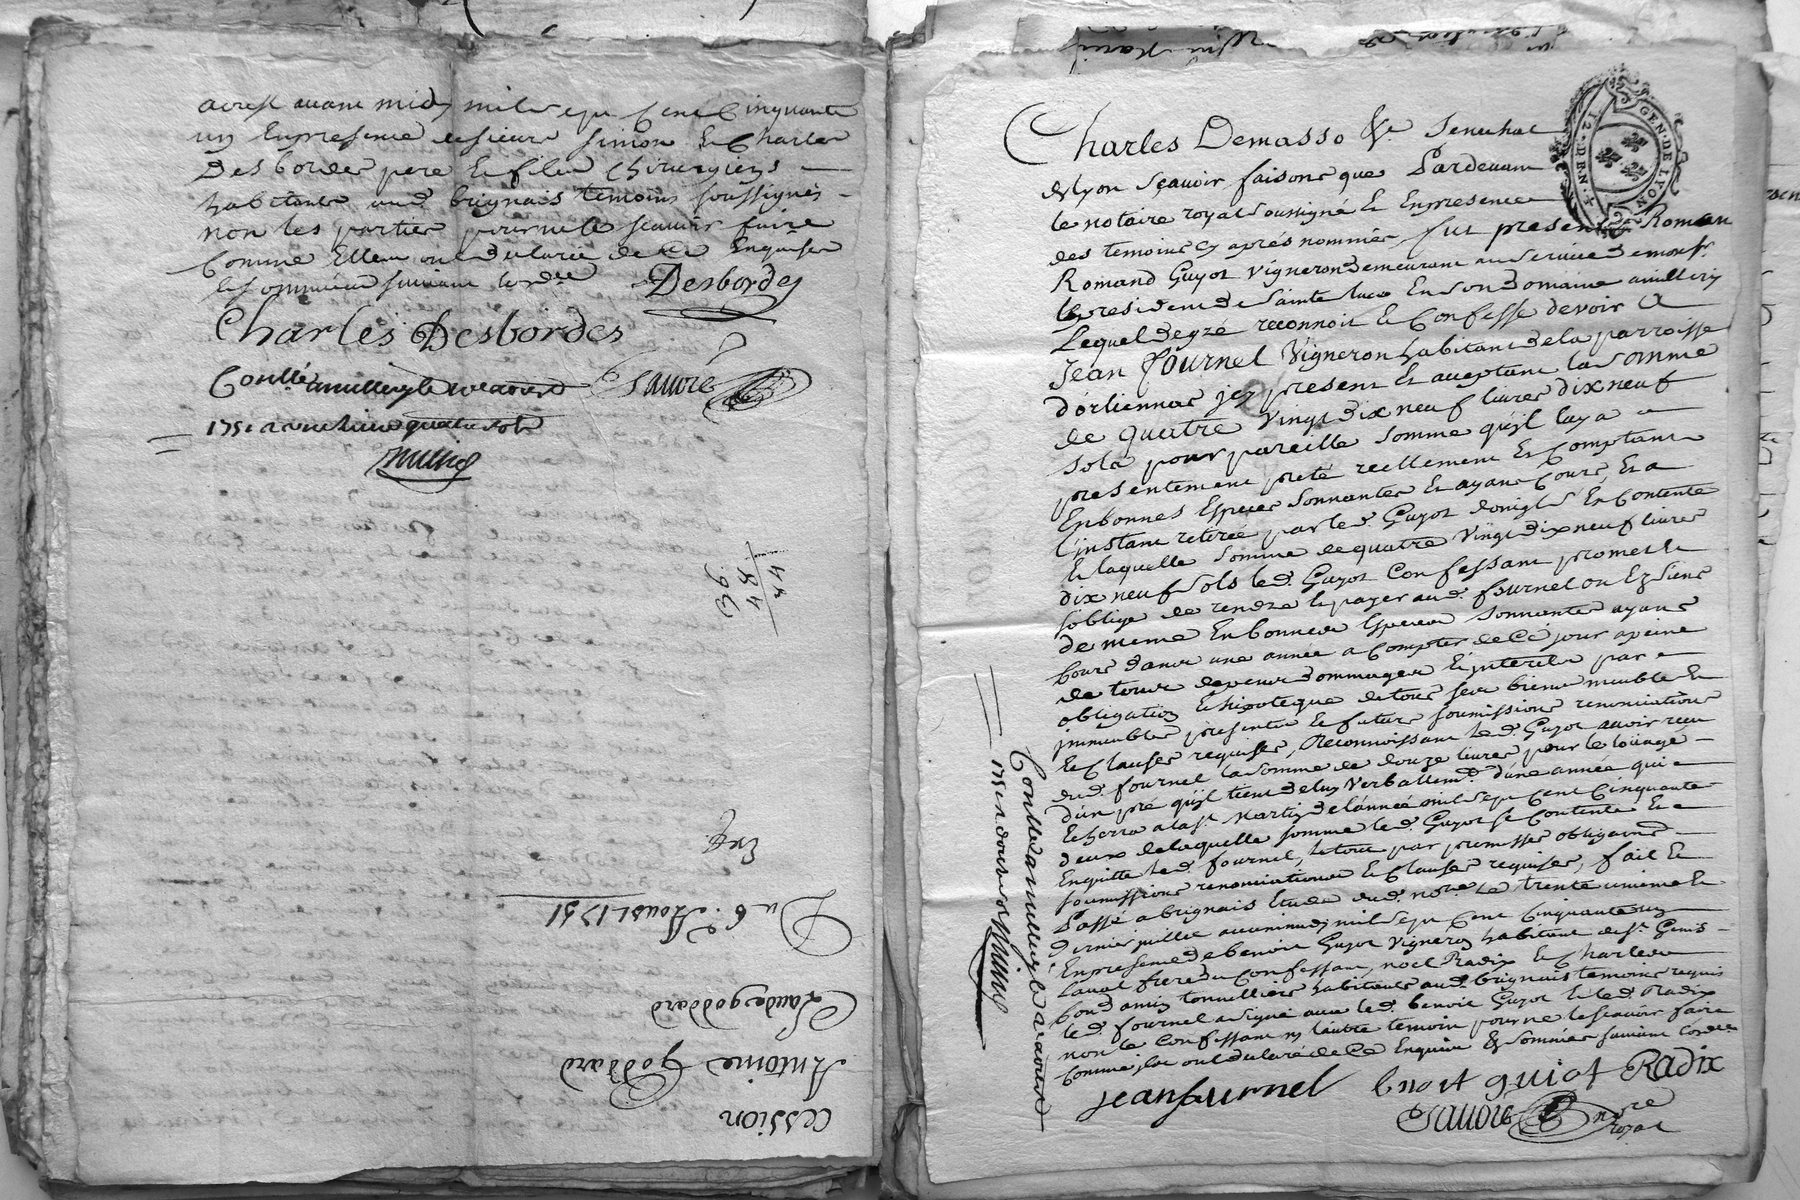 avant midy mil sept Cent Cinquante
un En presence de sieurs Simon & Charles
Desbordes pere & fils Chirurgiens
habitants aud. brignais temoins soussignés
non les parties pour ne le scavoir faire
Comme Elles ont declaré de Ce Enquises
& sommées suivant lord.ce
Desbordes
Charles Desbordes
Con.llé a millery le
Sauore
1751
44
48
96
Exp.
Du 6.e Aoust 1751
Claude goddard
Antoine Goddard
cession
Charles Demasso &c.a Senechal
GEN. DE LYON
12. DEN. 4
de lyon Sçavoir faisons que Pardevant
le notaire royal soussigné & En presence
des temoins cy aprés nommés, fut present Roman
Romand Guyot Vigneron demeurant au service de mons.r
le president de Sainte luce En son domaine a millery
Lequel de gré reconnoit & Confesse devoir a
Jean Fournel Vigneron habitant de la parroisse
dorliennas jcy present & acceptant la somme
de quatre Vingt dix neuf livres dix neuf
sols pour pareille somme qu'jl luy a
presentement preté reellement & Comptant
En bonnes Especes sonnantes & ayant Cours, & a
l'instant retirée par led. Guyot & Contente
& laquelle somme de quatre Vingt dix neuf livres
dix neuf sols led. Guyot Confessant promet &
s'oblige de rendre & payer aud. fournel ou Es siens
de meme En bonnes Especes sonnantes ayant
Cours dans une année a Compter de Ce jour a peine
de tous depens dommages & jnterets par
obligation & hipoteque de tous ses biens meubles &
jmmeubles presents & futurs soumissions renonciations
& Clauses requises, Reconnoissant led. Guyot avoir reçu
dud. fournel la somme de douze livres pour le loüage
d'un pré qu'jl tient de luy Verballem.t d'une année qui
Echerra a la s.t Martin de l'année mil sept Cent Cinquante
deux de laquelle somme led. Guyot se Contente &
En quitte led. fournel, le tout par promesses obligations
soumissions renonciations & Clauses requises, fait &
Passé a brignais Etude dud. no.re le trente unieme &
dernier juillet avant midy mil sept Cent Cinquante un
En presence de benoit Guyot Vigneron habitant de s.t Genis
Laval frere du Confessant, noel Radix & Charles
tonnelliers habitants aud. brignais temoins requis
led. fournel a signé avec led. benoit Guyot & led. Radix
non le Confessant ny lautre temoin pour ne le scavoir faire
Comme jls ont declaré de Ce Enquis & sommés suivant lord.ce
jean furnel
bnoit guiot
Radix
Sauore
no.re
royal
1751